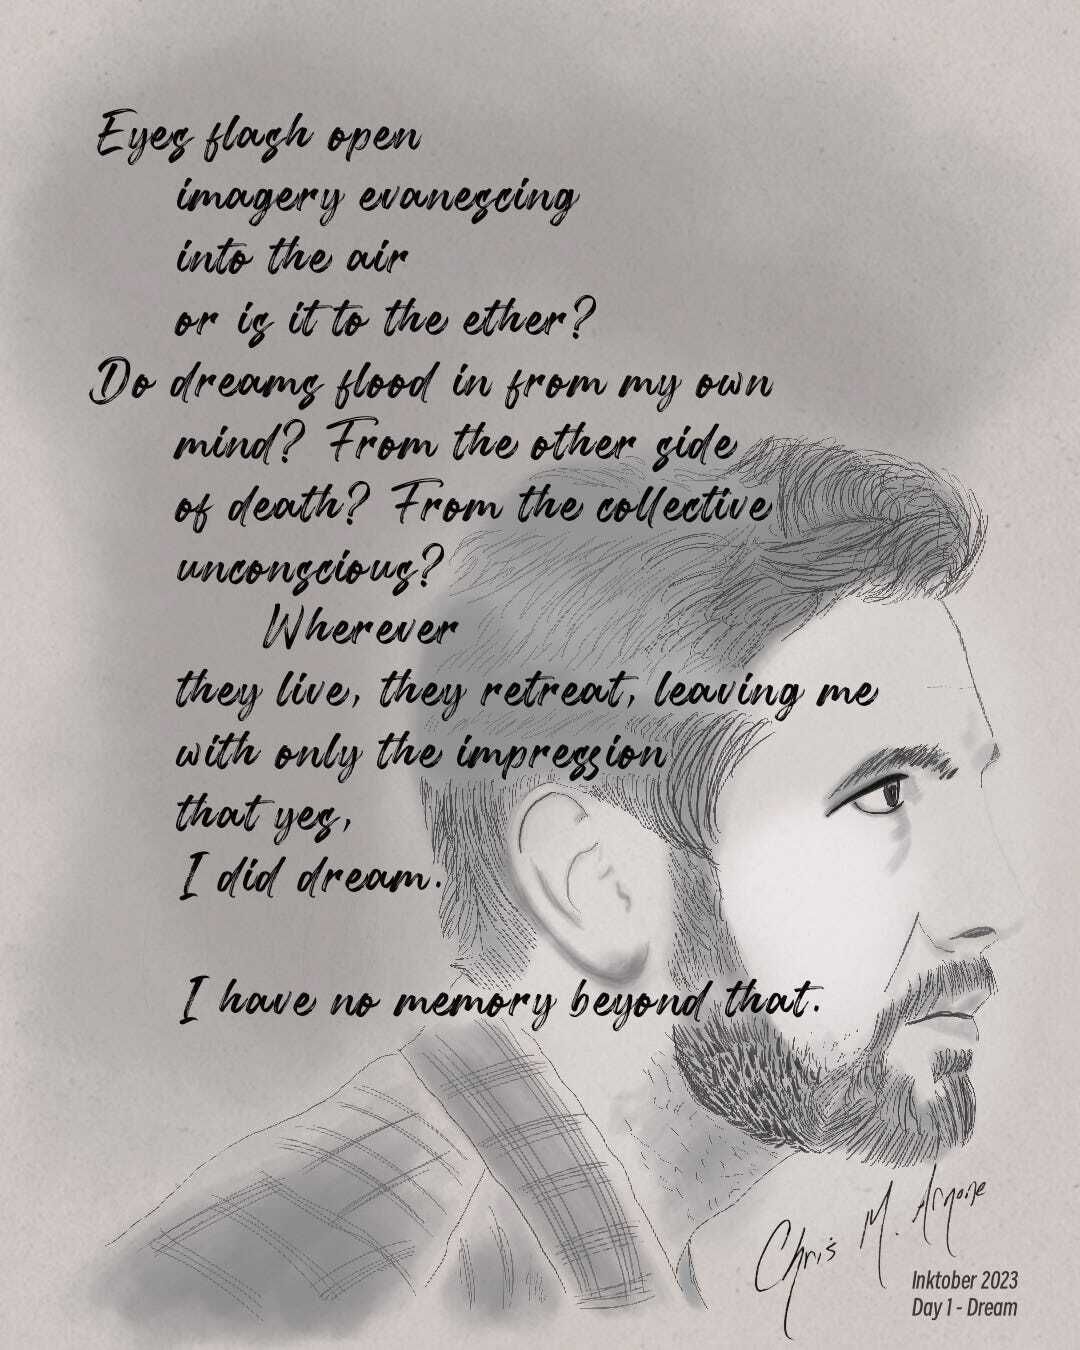 Eyes flash open
imagery evanescing
into the air
or is it to the ether?
Do dreams flood in from my own
mind? From the other side
of death? From the collective
unconscious?
Wherever
they live, they retreat, leaving me
with only the impression
that yes,
I did dream.
I have no memory beyond that.
Chris M. Arnone
Inktober 2023
Day 1 - Dream